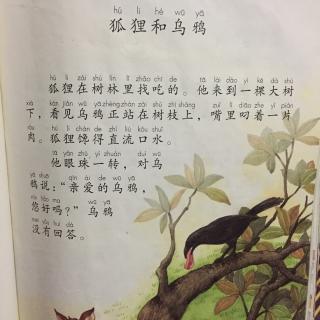 hú li hé wū yā
狐狸和乌鸦
hú li zài shù lín lǐ zhǎo chī de  tā lái dào yì kē dà shù
狐狸在树林里找吃的。他来到一棵大树
xià  kàn jiàn wū yā zhèng zhàn zài shù zhī shàng  zuǐ lǐ diāo zhe yí piàn
下，看见乌鸦正站在树枝上，嘴里叼着一片
ròu  hú li chán de zhí liú kǒu shuǐ
肉。狐狸馋得直流口水。
tā yǎn zhū yì zhuàn  duì wū
他眼珠一转，对乌
yā shuō  qīn ài de wū yā
鸦说：“亲爱的乌鸦，
nín hǎo ma  wū yā
您好吗？”乌鸦
méi yǒu huí dá
没有回答。